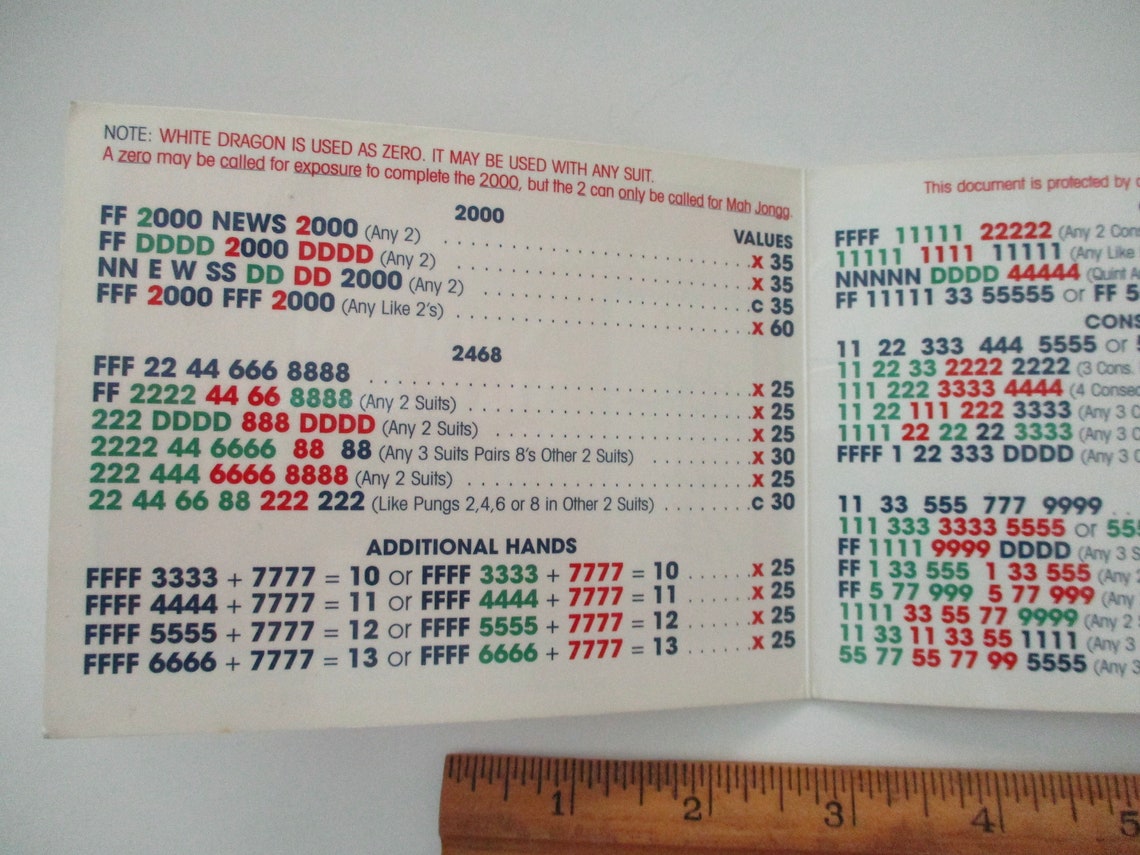 NOTE: WHITE DRAGON IS USED AS ZERO. IT MAY BE USED WITH ANY SUIT.
A zero may be called for exposure to complete the 2000, but the 2 can only be called for Mah Jongg.
2000
VALUES
FF 2000 NEWS 2000 (Any 2) . . . . . . . . . . X 35
FF DDDD 2000 DDDD (Any 2) . . . . . . . . . . X 35
NN E W SS DD DD 2000 (Any 2) . . . . . . . . . . C 35
FFF 2000 FFF 2000 (Any Like 2's) . . . . . . . . . . X 60
2468
FFF 22 44 666 8888 . . . . . . . . . . X 25
FF 2222 44 66 8888 (Any 2 Suits) . . . . . . . . . . X 25
222 DDDD 888 DDDD (Any 2 Suits) . . . . . . . . . . X 25
2222 44 6666 88 88 (Any 3 Suits Pairs 8's Other 2 Suits) . . . . . . . . . . X 30
222 444 6666 8888 (Any 2 Suits) . . . . . . . . . . X 25
22 44 66 88 222 222 (Like Pungs 2,4,6 or 8 in Other 2 Suits) . . . . . . . . C 30
ADDITIONAL HANDS
FFFF 3333 + 7777 = 10 or FFFF 3333 + 7777 = 10 . . . . . . X 25
FFFF 4444 + 7777 = 11 or FFFF 4444 + 7777 = 11 . . . . . . X 25
FFFF 5555 + 7777 = 12 or FFFF 5555 + 7777 = 12 . . . . . . X 25
FFFF 6666 + 7777 = 13 or FFFF 6666 + 7777 = 13 . . . . . . X 25
This document is protected by
FFFF 11111 22222 (Any 2
11111 1111 11111 (Any Like
NNNNN DDDD 44444 (Quint
FF 11111 33 55555 or FF
11 22 333 444 5555 or
11 22 33 2222 2222 (3 Cons.
111 222 3333 4444 (4
11 22 111 222 3333 (Any 3
1111 22 22 22 3333 (Any 3
FFFF 1 22 333 DDDD (Any 3
11 33 555 777 9999 . .
111 333 3333 5555 or
FF 1111 9999 DDDD (Any 3
FF 1 33 555 1 33 555 (Any 2
FF 5 77 999 5 77 999 (Any
1111 33 55 77 9999 (Any 2
11 33 11 33 55 1111 (Any 3
55 77 55 77 99 5555 (Any 3
1 2 3 4 5